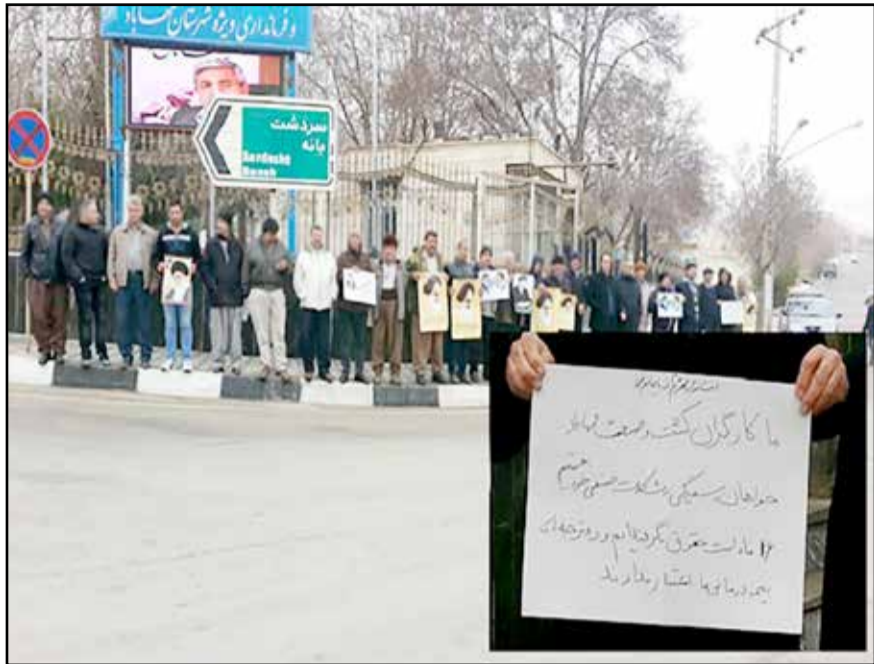 و فرمانداری ویژه شهرستان مهاباد
سردشت
بانه
Sardasht
Baneh
ما کارگران کشت و صنعت مهاباد
خواهان رسیدگی مشکلات صنفی خود هستیم
۱۶ ماه است حقوق نگرفته‌ایم و دفترچه‌های
بیمه درمانی ما اعتبار ندارند